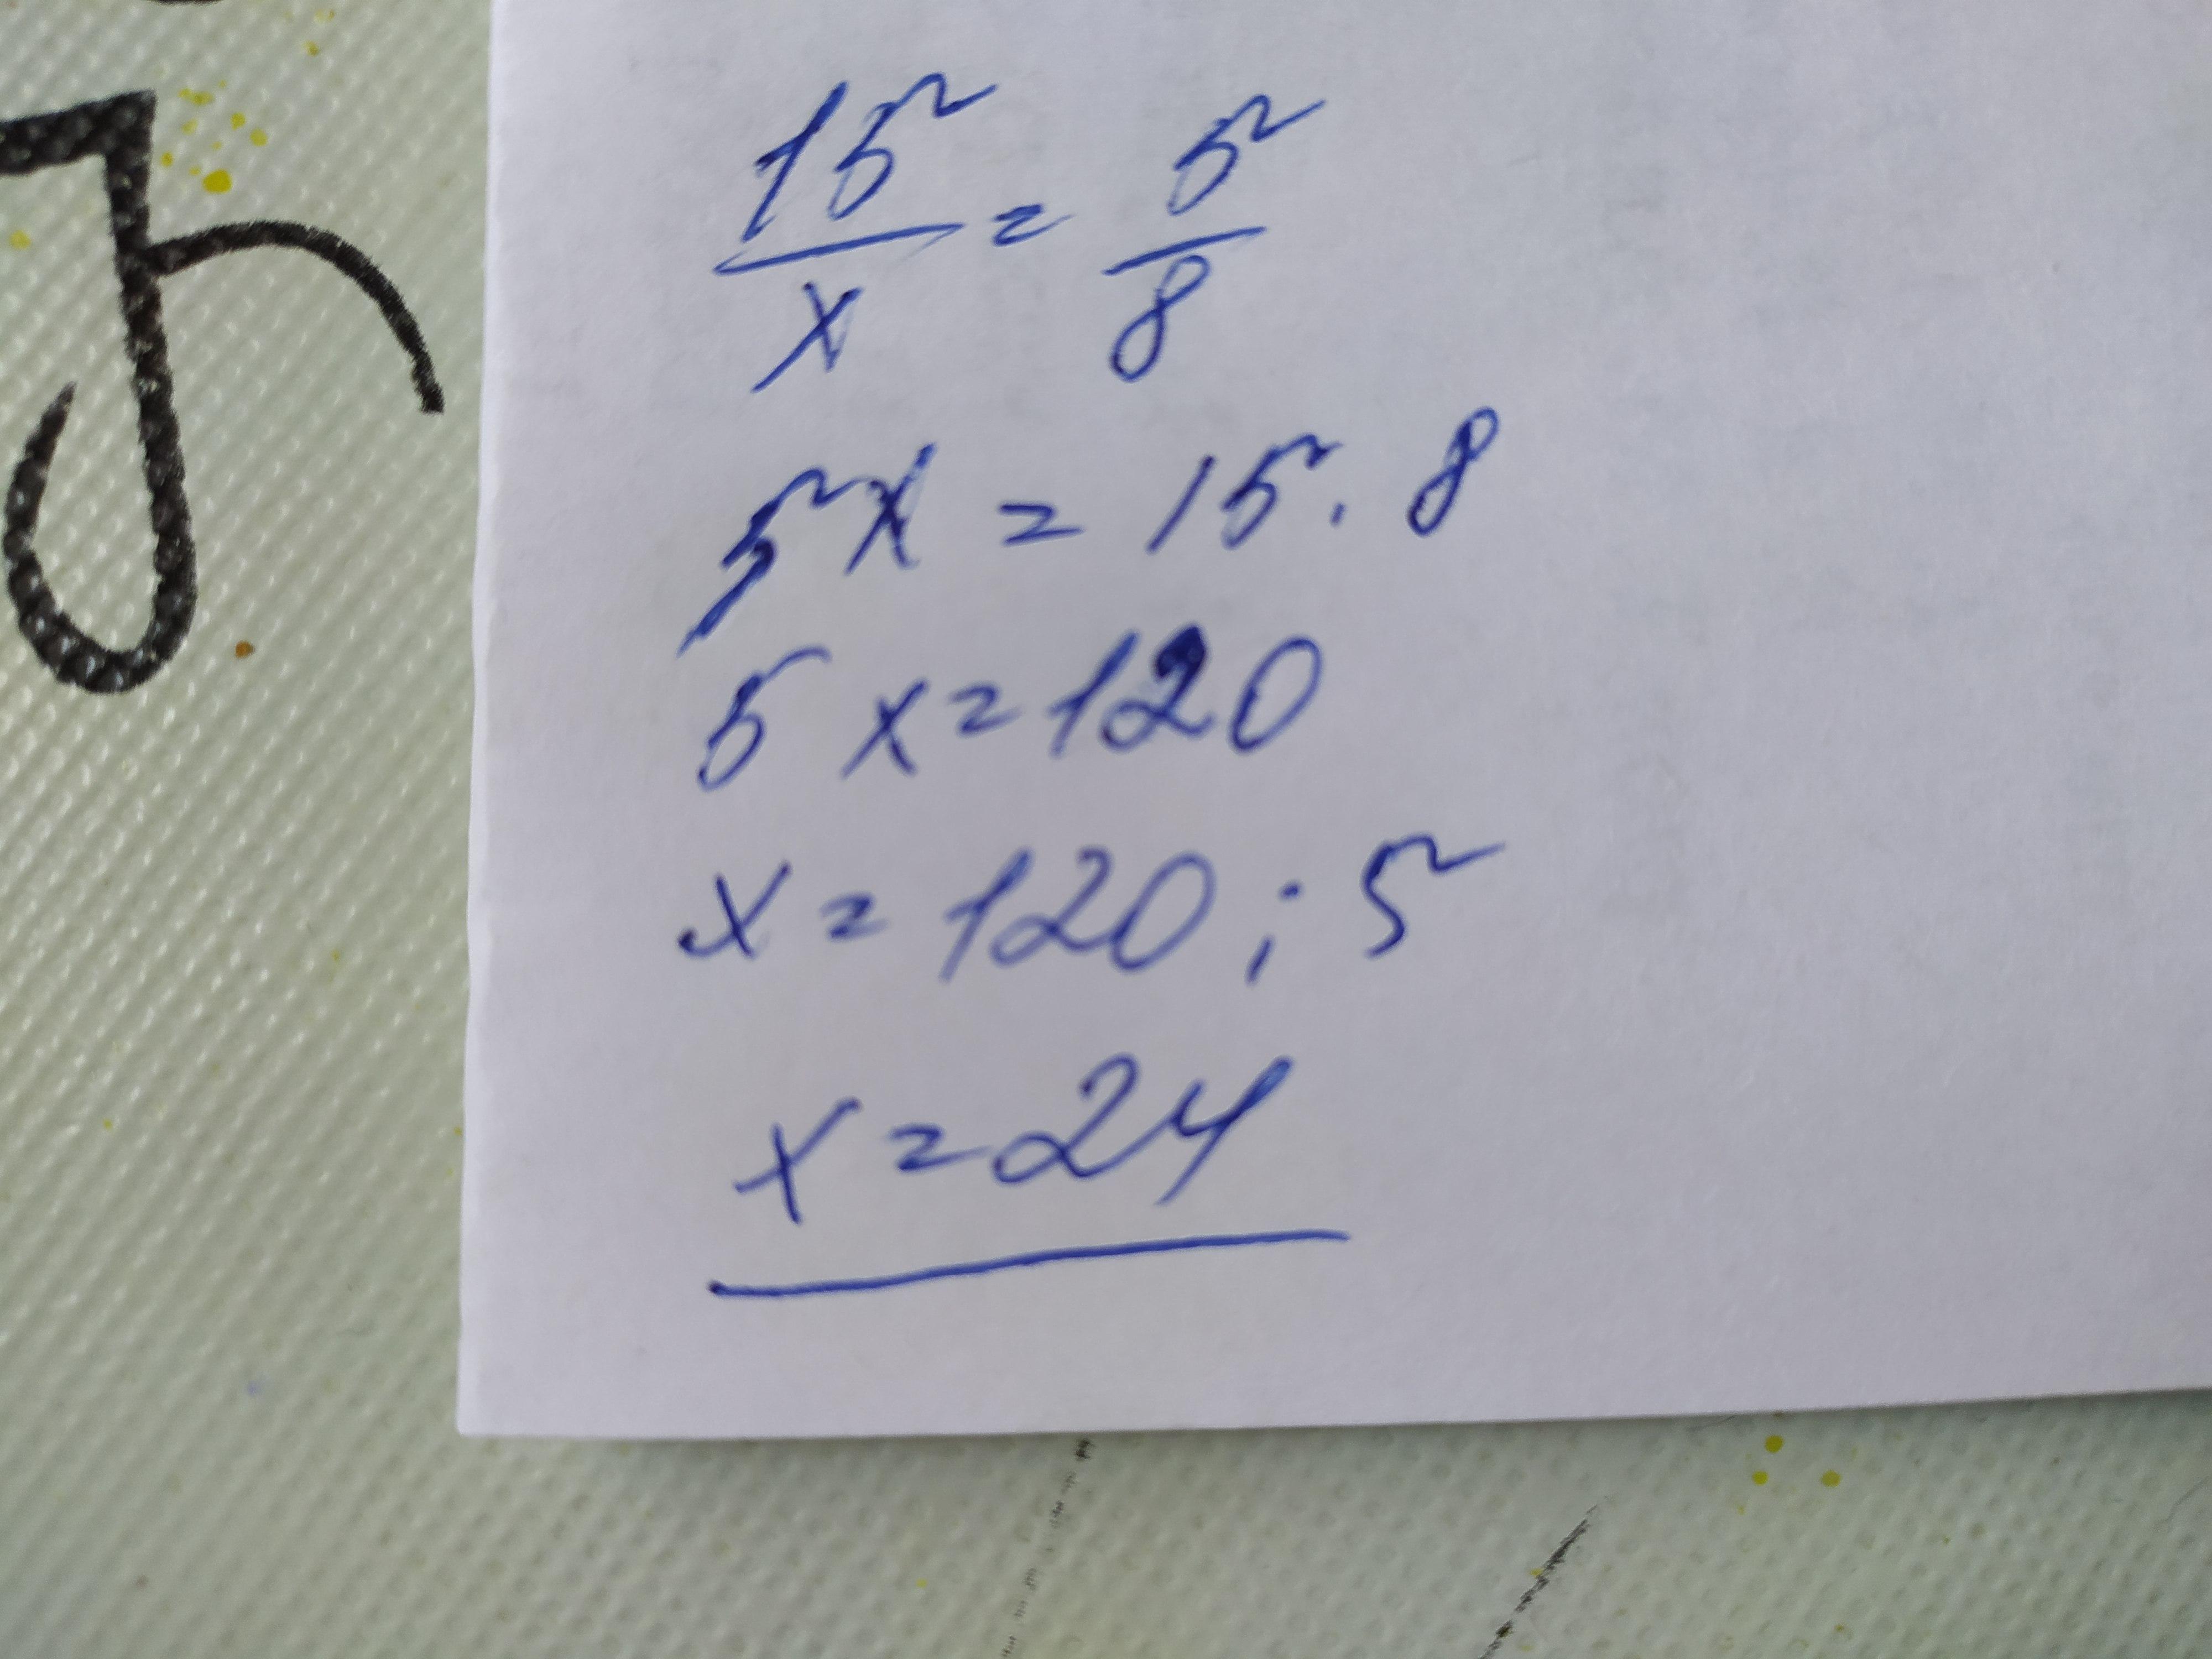 15/x = 5/8
5x = 15 . 8
5x = 120
x = 120 : 5
x = 24